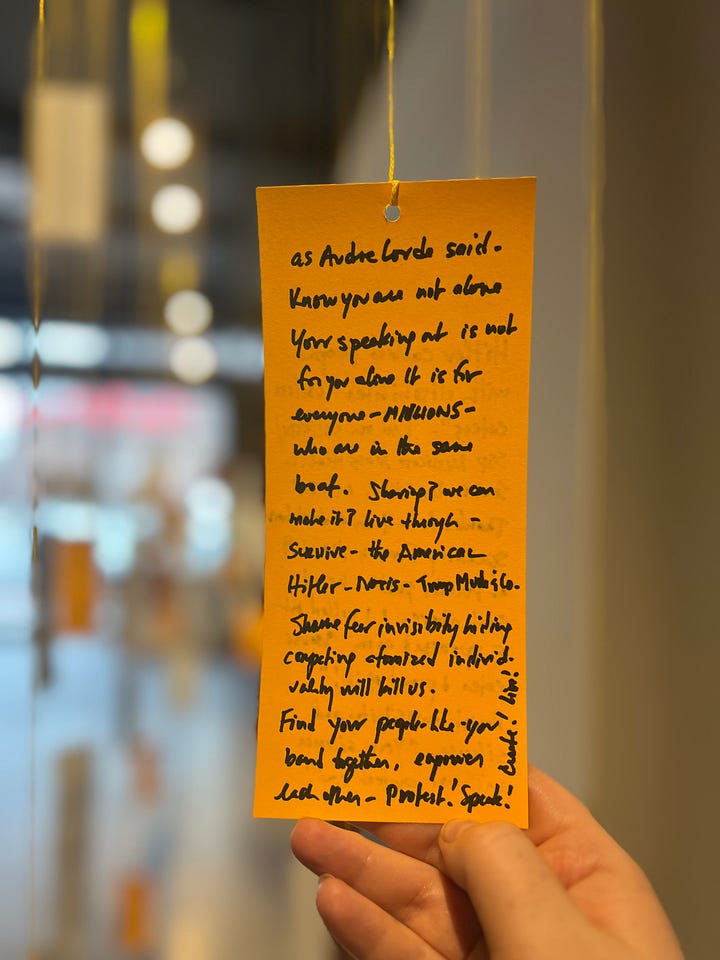 as Audre Lorde said -
Know you are not alone
Your speaking out is not
for you alone It is for
everyone - MILLIONS -
who are in the same
boat. Sharing? we can
make it? live through -
Survive - the American
Hitler - Nazis - Trump Musk & Co.
Shame fear invisibility hiding
competing atomized individ-
uality will kill us.
Find your people-like-you!
band together, empower
each other - Protest! Speak!
Create! Live!